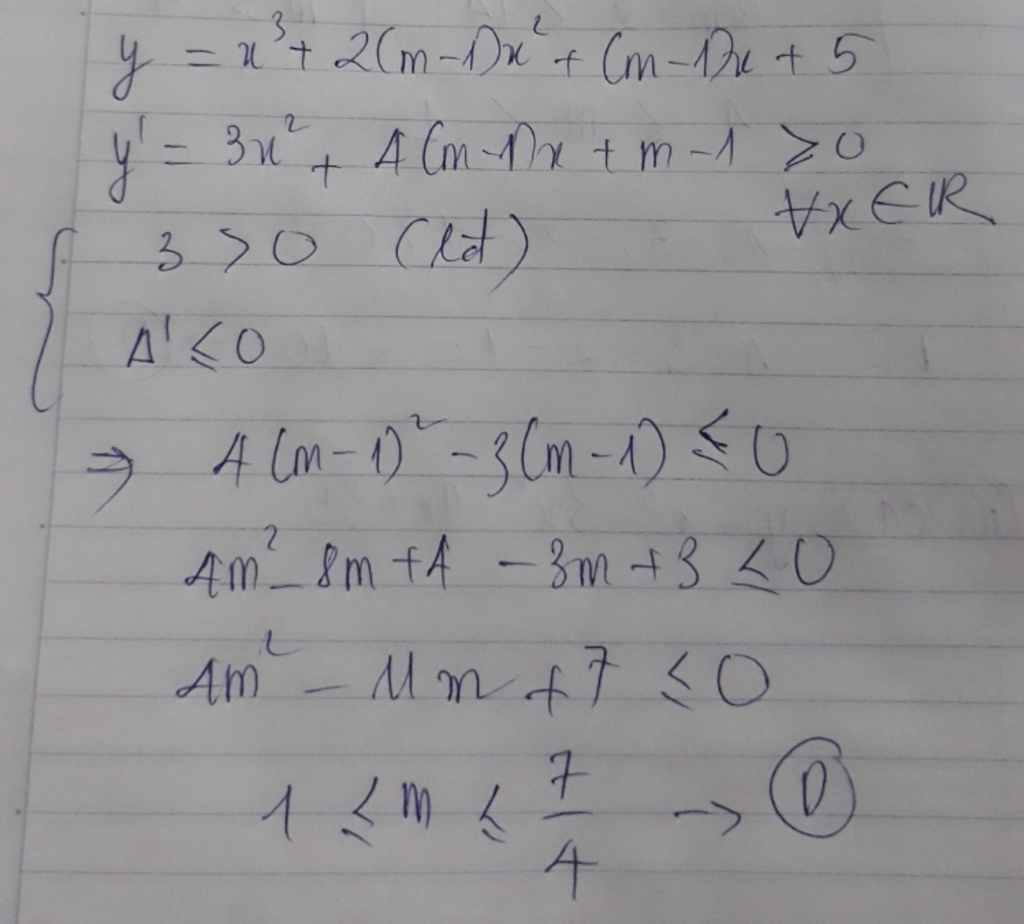 y = x³ + 2(m-1)x² + (m-1)x + 5
y' = 3x² + 4(m-1)x + m-1 ≥ 0
∀x ∈ ℝ
3 > 0 (lđ)
Δ' ≤ 0
⇒ 4(m-1)² - 3(m-1) ≤ 0
4m² - 8m + 4 - 3m + 3 ≤ 0
4m² - 11m + 7 ≤ 0
1 ≤ m ≤ 7/4 → D